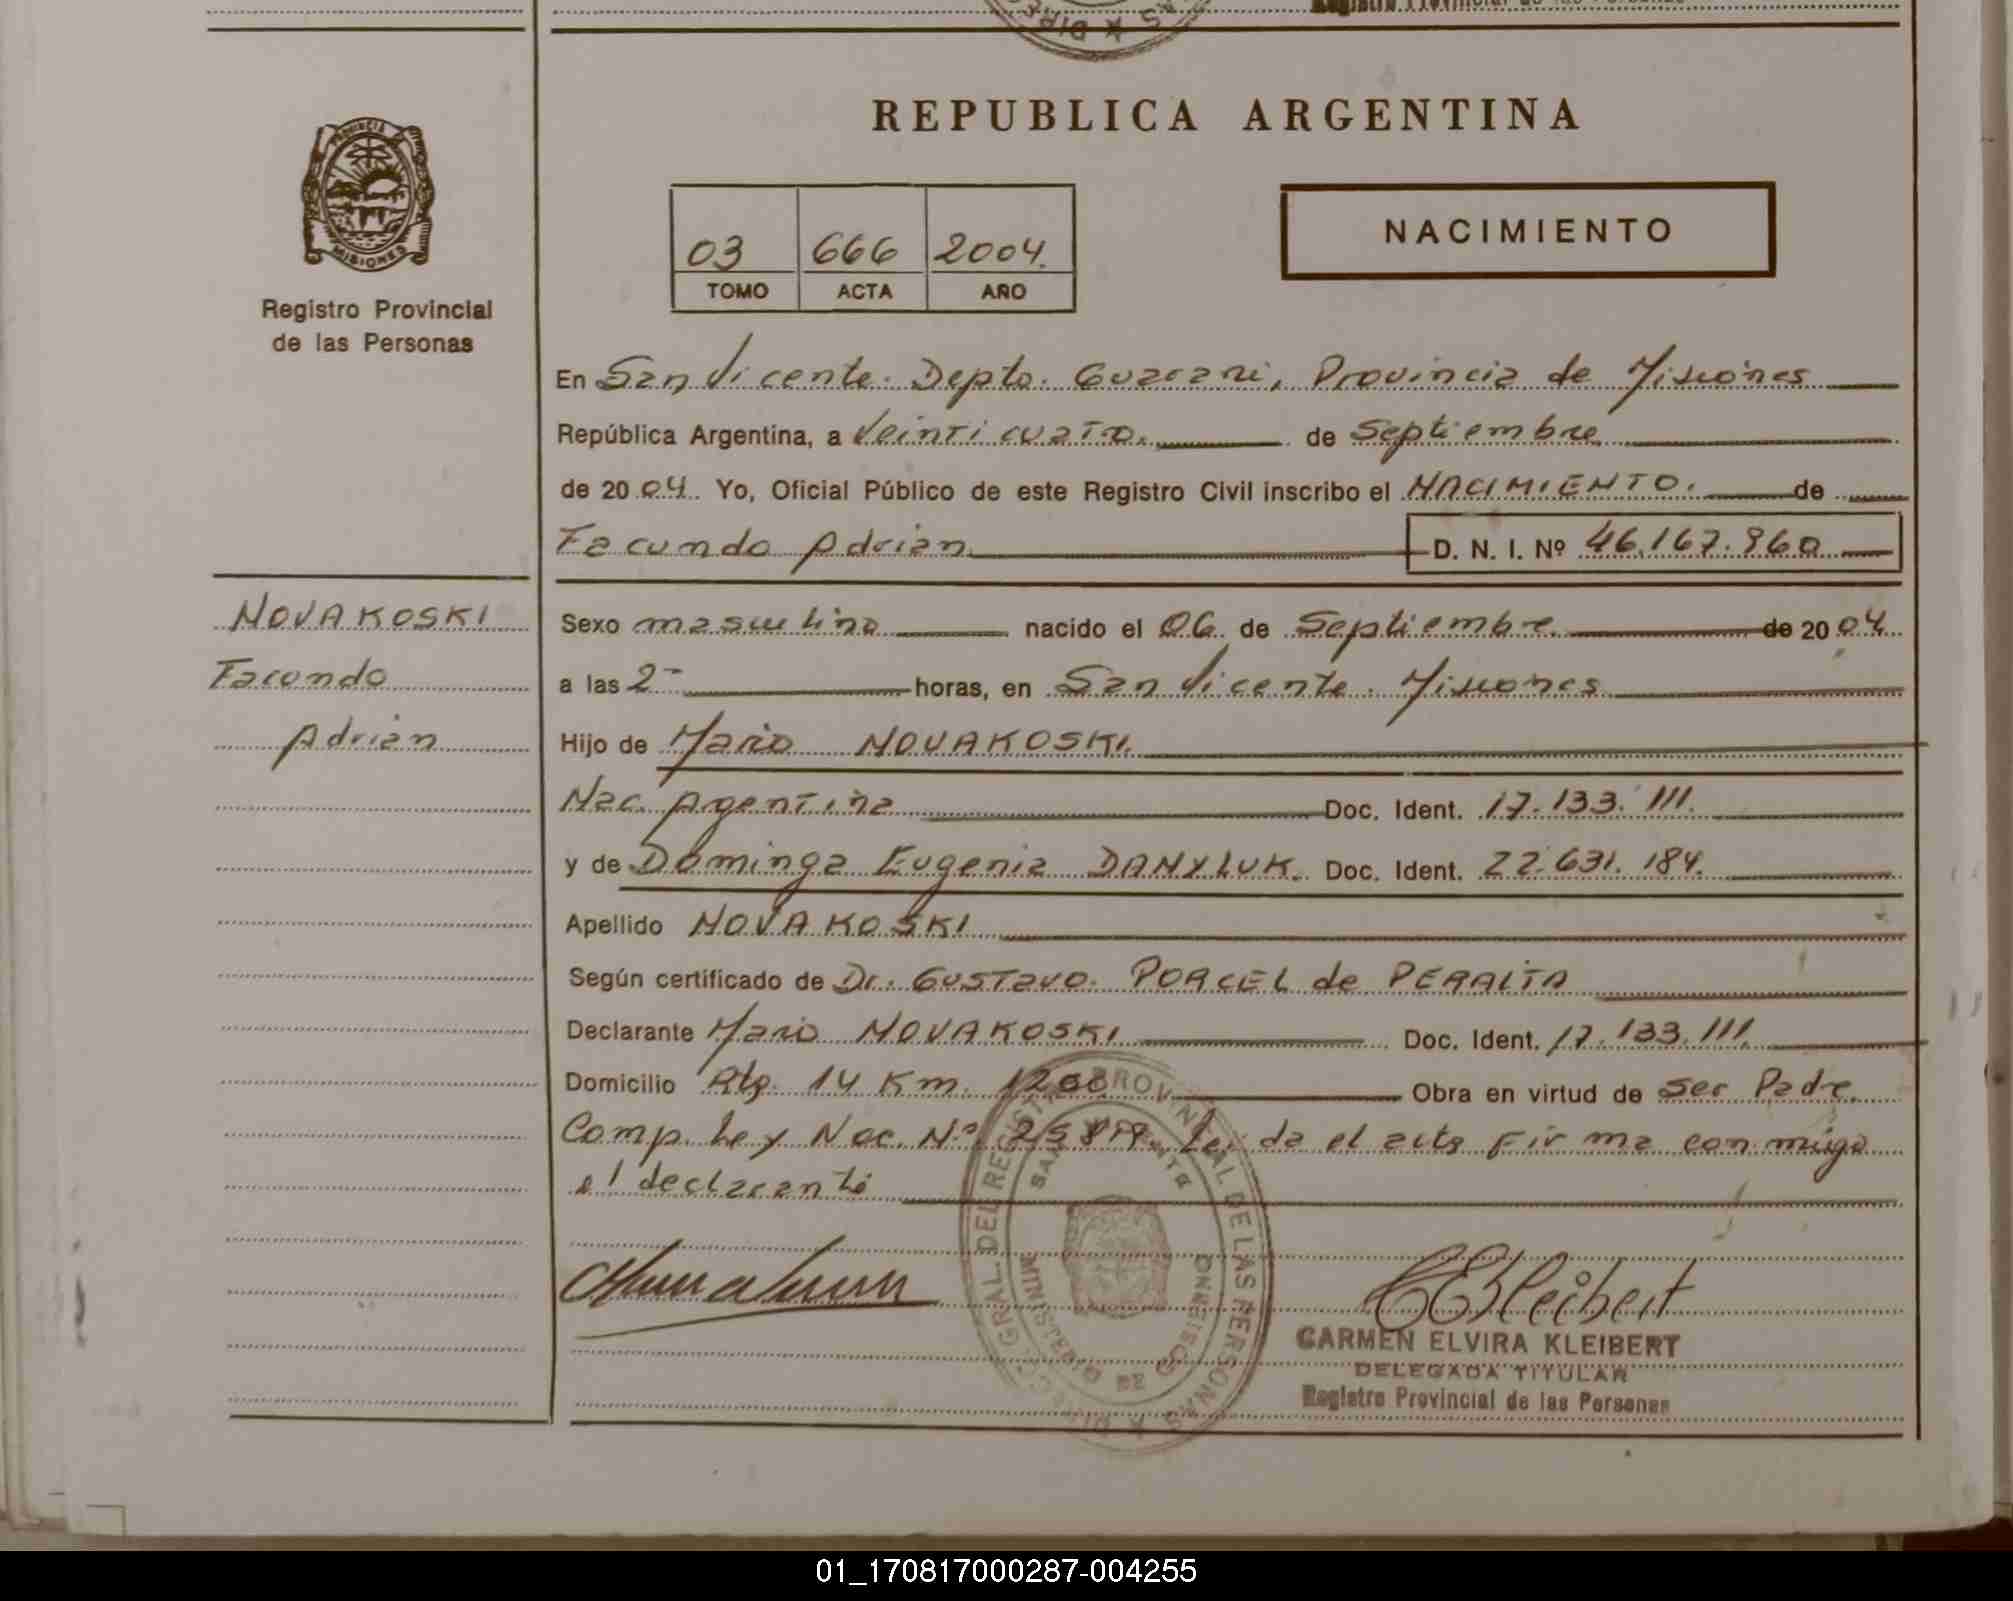 Registro Provincial de las Personas
DIREC
REPUBLICA ARGENTINA
PROVINCIA
MISIONES
Registro Provincial
de las Personas
03 666 2004.
TOMO ACTA AÑO
NACIMIENTO
En San Vicente. Depto. Guarani, Provincia de Misiones
República Argentina, a Veinticuatro. de Septiembre
de 2004. Yo, Oficial Público de este Registro Civil inscribo el NACIMIENTO. de
Facundo Adrian D. N. I. Nº 46.167.960
NOVAKOSKI
Facundo
Adrian
Sexo masculino nacido el 06 de Septiembre de 2004
a las 2 horas, en San Vicente. Misiones
Hijo de Mario NOVAKOSKI.
Nac. Agentina Doc. Ident. 17.133.111.
y de Dominga Eugenia DANYLUK. Doc. Ident. 22.631.184.
Apellido NOVAKOSKI
Según certificado de Dr. Gustavo. PORCEL de PERALTA
Declarante Mario NOVAKOSKI Doc. Ident. 17.133.111.
Domicilio Rta. 14 Km. 1200 Obra en virtud de ser Padre.
Comp. Ley Nac. Nº Leida el acta Firma conmigo
el declarante
GRAL. DEL REGISTRO PROVINCIAL DE LAS PERSONAS
SAN VICENTE
MISIONES
CEKleibert
CARMEN ELVIRA KLEIBERT
DELEGADA TITULAR
Registro Provincial de las Personas
01_170817000287-004255